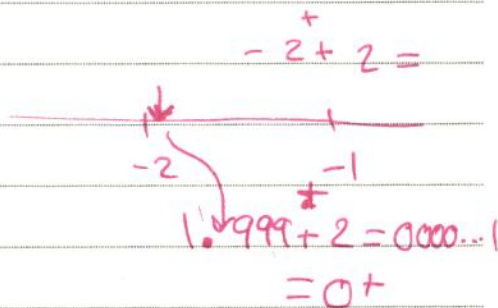 -2⁺ + 2 =
-2 -1
1.999 + 2 = 0000...1
= 0+